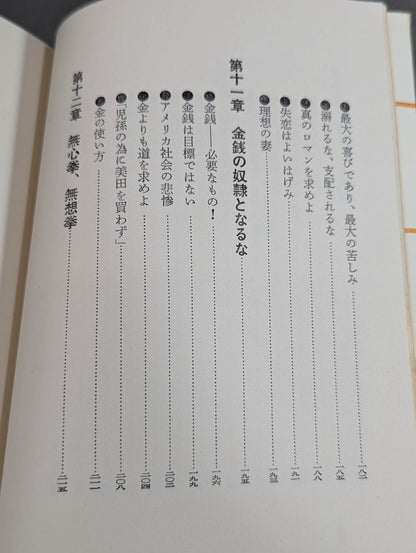 ●最大の喜びであり、最大の苦しみ……一八二
●溺れるな、支配されるな……一八五
●真のロマンを求めよ……一八八
●失恋はよいはげみ……一九一
●理想の妻……一九三
第十一章 金銭の奴隷となるな……一九五
●金銭――必要なもの！……一九六
●金銭は目標ではない……一九九
●アメリカ社会の悲惨……二〇二
●金よりも道を求めよ……二〇四
●「児孫の為に美田を買わず」……二〇八
●金の使い方……二一一
第十二章 無心拳、無想拳……二一五